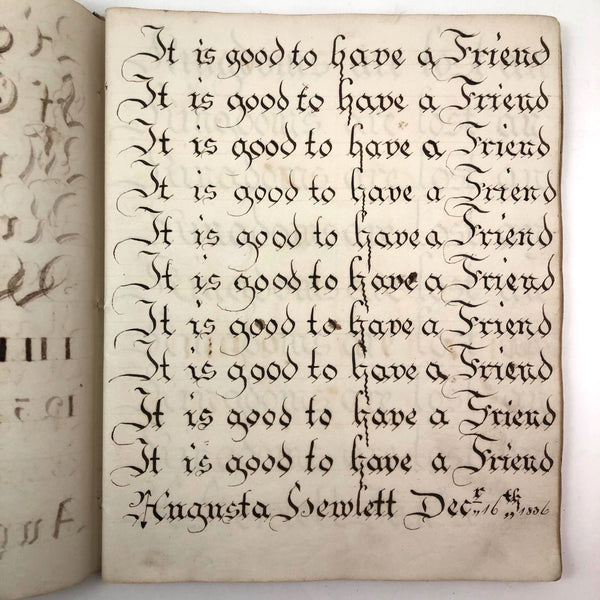 It is good to have a Friend
It is good to have a Friend
It is good to have a Friend
It is good to have a Friend
It is good to have a Friend
It is good to have a Friend
It is good to have a Friend
It is good to have a Friend
It is good to have a Friend
It is good to have a Friend
Augusta Hewlett Decr 16th 1836